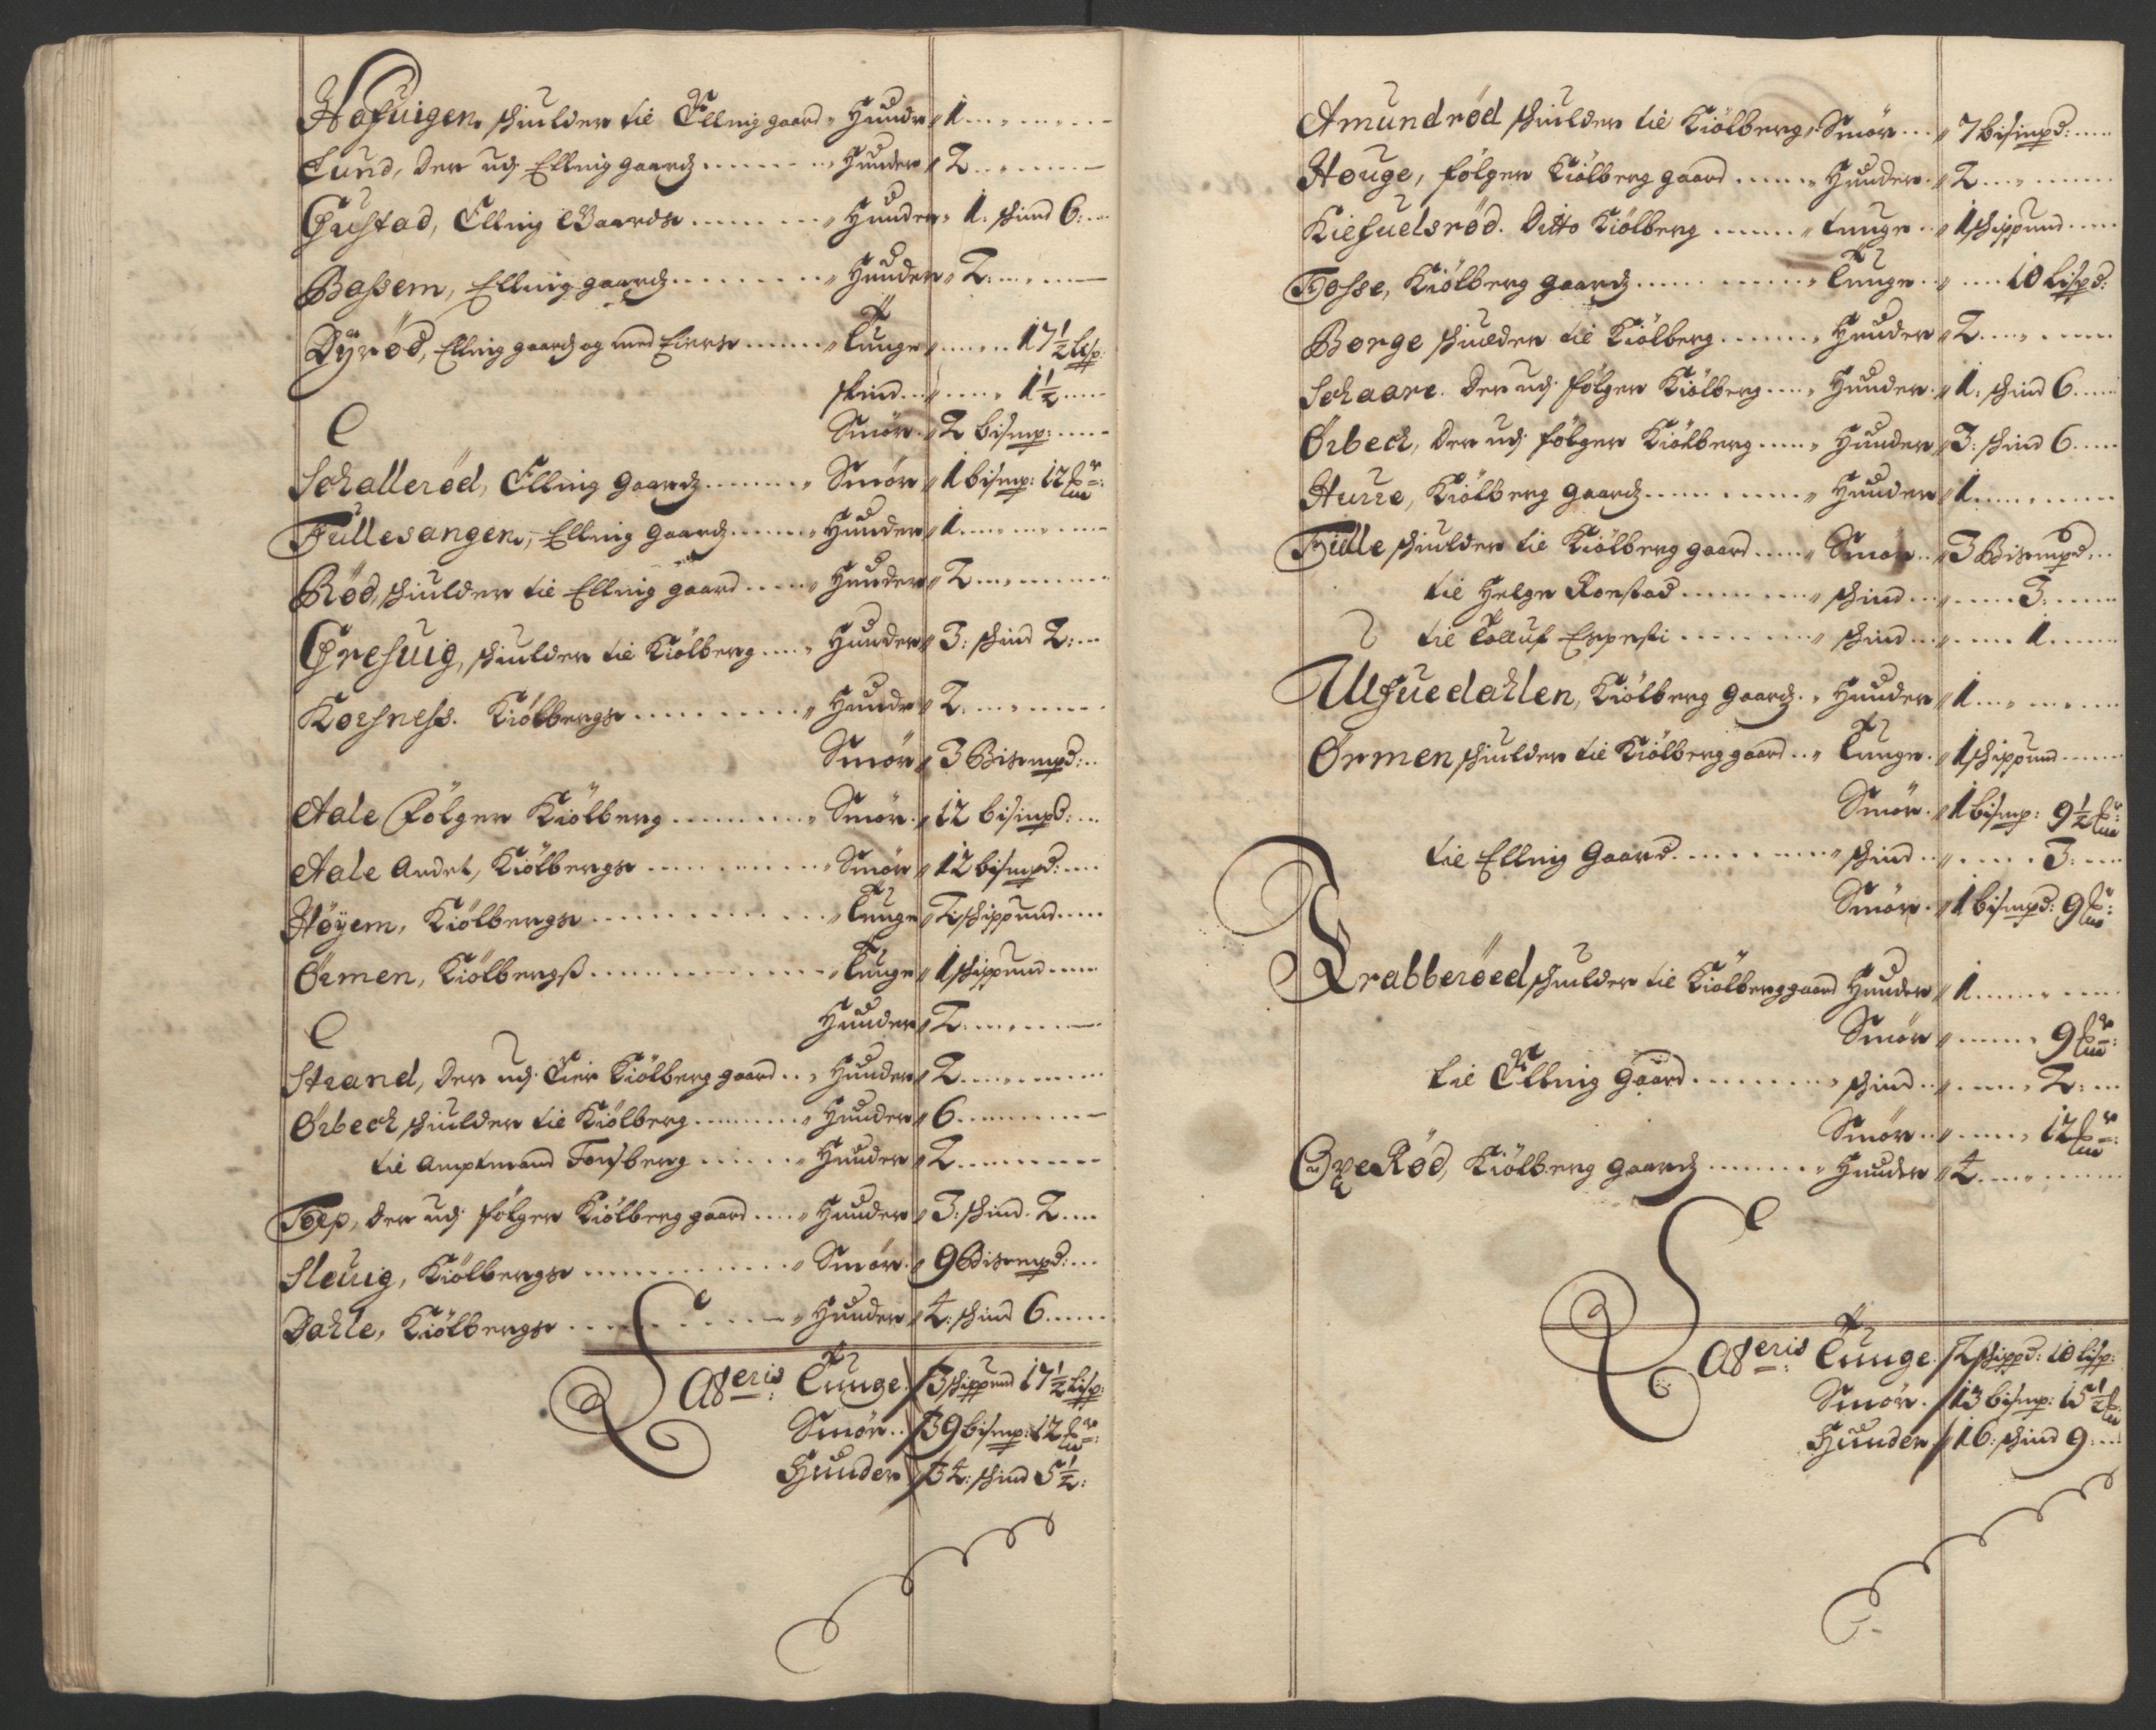 Hafuigen, skiulder til Elling gaard " Hunder " 1
Lund, der udj Elling gaard " Hunder " 2
Gustad, Elling Gaards " Hunder " 1: skind 6:
Bassem, Elling gaard " Hunder " 2:
Dÿrød, Elling gaard og med Eiere " Tunge " 17½ lisp:
skind " 1½
Smør " 2 bismp:
Schallerød, Elling Gaard " Smør " 1 bismp: 12
Fullesangen, Elling Gaard " Hunder " 1
Rød, skiulder til Elling gaard " Hunder " 2
Gresuig, skiulder til Kiølberg " Hunder " 3: skind 2:
Korsness. Kiølbergs " Hunder " 2
Smør " 3 Bismpd:
Aale følger Kiølberg " Smør " 12 bismpd:
Aale Andet, Kiølbergs " Smør " 12 bismpd:
Høyem, Kiølbergs " Tunge " 1 schippund
Ørmen, Kiølbergs " Tunge " 1 schippund
Hunder " 2
Strand, der udj Eier Kiølberg gaard " Hunder " 2
Ørbech skiulder til Kiølberg " Hunder " 6
til Amptmand Tonsberg " Hunder " 2
Torp, der udj følger Kiølberg gaard " Hunder " 3: skind 2
Sleuig, Kiølbergs " Smør " 9 Bismpd:
Dahle, Kiølbergs " Hunder " 4: skind 6
Lateris Tunge 3 schippund 17½ Lisp:
Smør 39 bismp: 12
Hunder 34: skind 5½:
Amundrød skiulder til Kiølberg " Smør " 7 bismpd:
Houge, følger Kiølberg gaard " Hunder " 2
Kiefuelsrød. Ditto Kiølberg " Tunge " 1 schippund
Tosse, Kiølberg gaard " Tunge " 10 Lispd:
Borge skiulder til Kiølberg " Hunder " 2
Schaare. der udj følger Kiølberg " Hunder " 1: skind 6
Ørbech, der udj følger Kiølberg " Hunder " 3: skind 6
Hurre, Kiølberg gaard " Hunder " 1
Fielle skiulder til Kiølberg gaard " Smør " 3 Bismpd
til Helge Rostad " skind " 3:
til Tolluf Espesti " skind " 1
Ulfuedahlen, Kiølberg Gaard " Hunder " 1
Ørmen skiulder til Kiølberg gaard " Tunge " 1 schippund
Smør " 1 bismp: 9½
til Elling Gaard " skind " 3:
Smør " 1 bismpd: 9
Krabberøed skiulder til Kiølberg gaard Hunder " 1
Smør " 9
til Elling Gaard " skind " 2:
Smør " 12
Oxe Rød, Kiølberg Gaard " Hunder " 4
Lateris Tunge 2 schippd: 10 lisp:
Smør 13 bismp: 15½
Hunder 16: skind 9: